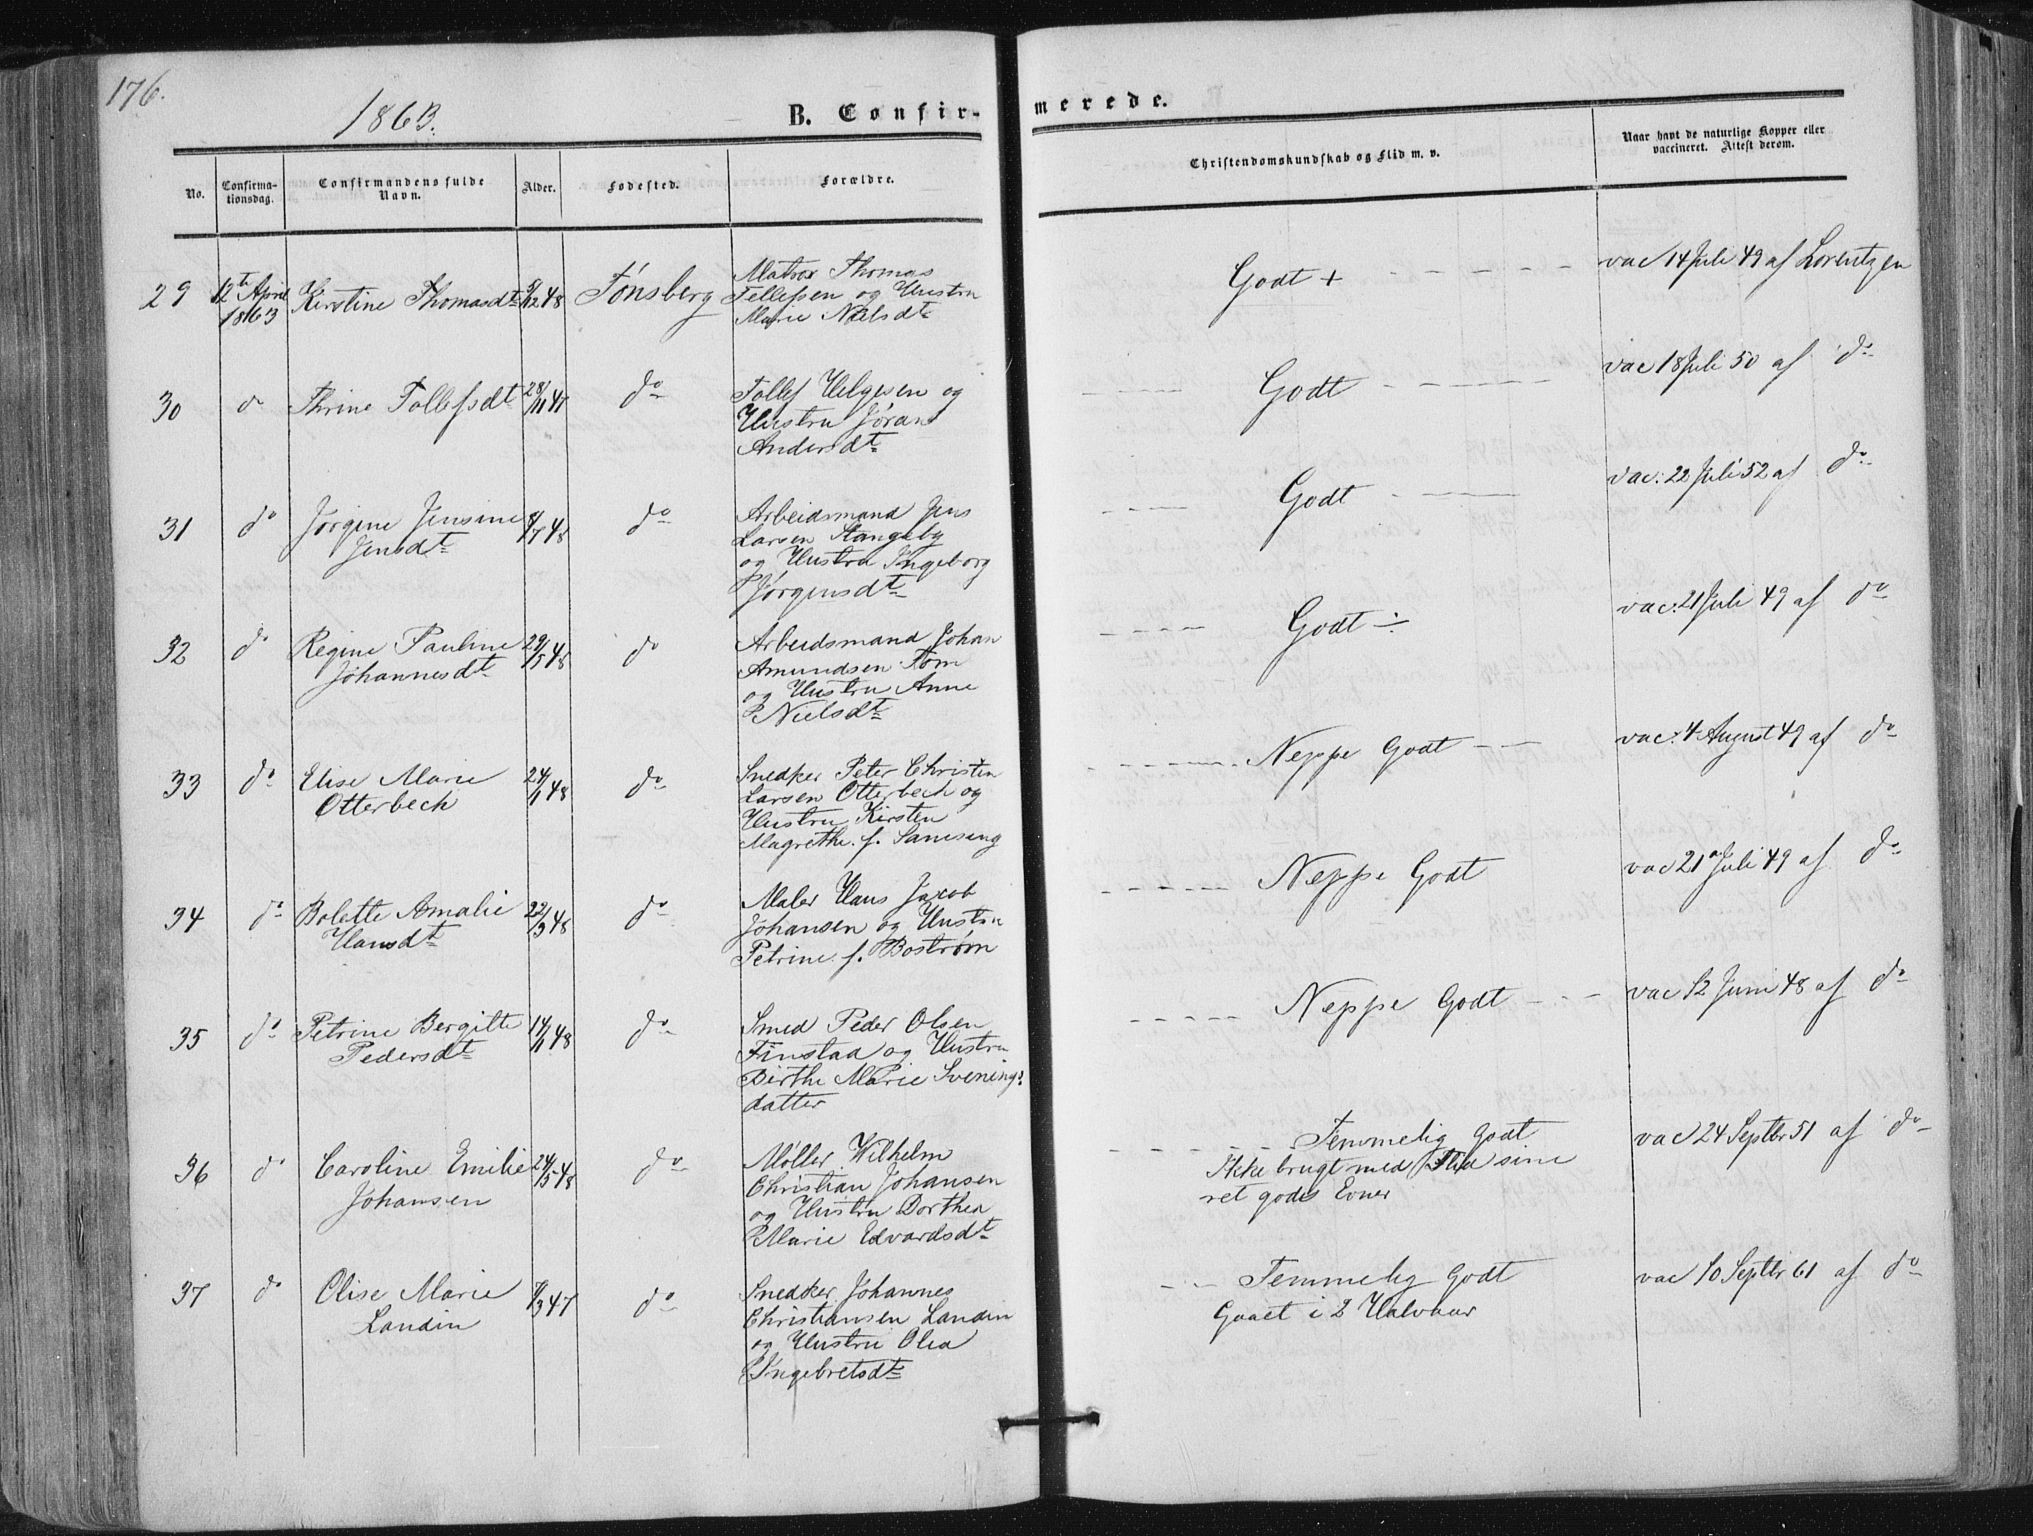 176.
1863.
B. Confir-
merede.
No.
Confirma-
tionsdag.
Confirmandens fulde
Navn.
Alder.
Fødested.
Forældre.
Christendomskundskab og Flid m. v.
Naar havt de naturlige Kopper eller
vaccineret. Attest derom.
29 12te April 1863 Kirstine Thomasdt 9/12 48 Tønsberg
Matros Thomas
Tellefsen og Hustru
Marie Nielsdt
Godt +
vac 14 Juli 49 af Lorentzen
30 do Thrine Tollefsdt 28/11 47 do
Tollef Helgesen og
Hustru Jøran
Andersdt
Godt
vac 18 Juli 50 af do
31 do Jørgine Jensine
Jensdt
/7 48 do
Arbeidsmand Jens
Larsen Stangeby
og Hustru Ingeborg
Jørgensdt
Godt
vac: 22 Juli 52 af do
32 do Regine Pauline
Johannesdt
29/5 48 do
Arbeidsmand Johan
Amundsen Tom
og Hustru Anne
Nielsdt
Godt ÷
vac: 21 Juli 49 af do
33 do Elise Marie
Otterbech
24/1 48 do
Snedker Peter Christen
Larsen Otterbech og
Hustru Kirsten
Magrethe f.
Neppe Godt
vac: 4 August 49 af do
34 do Bolette Amalie
Hansdt
22/3 48 do
Maler Hans Jacob
Johansen og Hustru
Petrine f. Bostrøm
Neppe Godt
vac 21 Juli 49 af do
35 do Petrine Bergitte
Pedersdt
14/1 48 do
Smed Peder Olsen
Finstad og Hustru
Birthe Marie Svenings
datter
Neppe Godt
vac 12 Juni 48 af do
36 do Caroline Emilie
Johansen
24/5 48 do
Møller Wilhelm
Christian Johansen
og Hustru Dorthea
Marie Edvardsdt
Temmelig Godt
Ikke brugt med Flid sine
ret gode Evner
vac 24 Septbr 51 af do
37 do Olise Marie
Landin
/3 47 do
Snedker Johannes
Christiansen Landin
og Hustru Olea
Ingebretsdt
Temmelig Godt
Gaaet i 2 Halvaar
vac 10 Septbr 61 af do